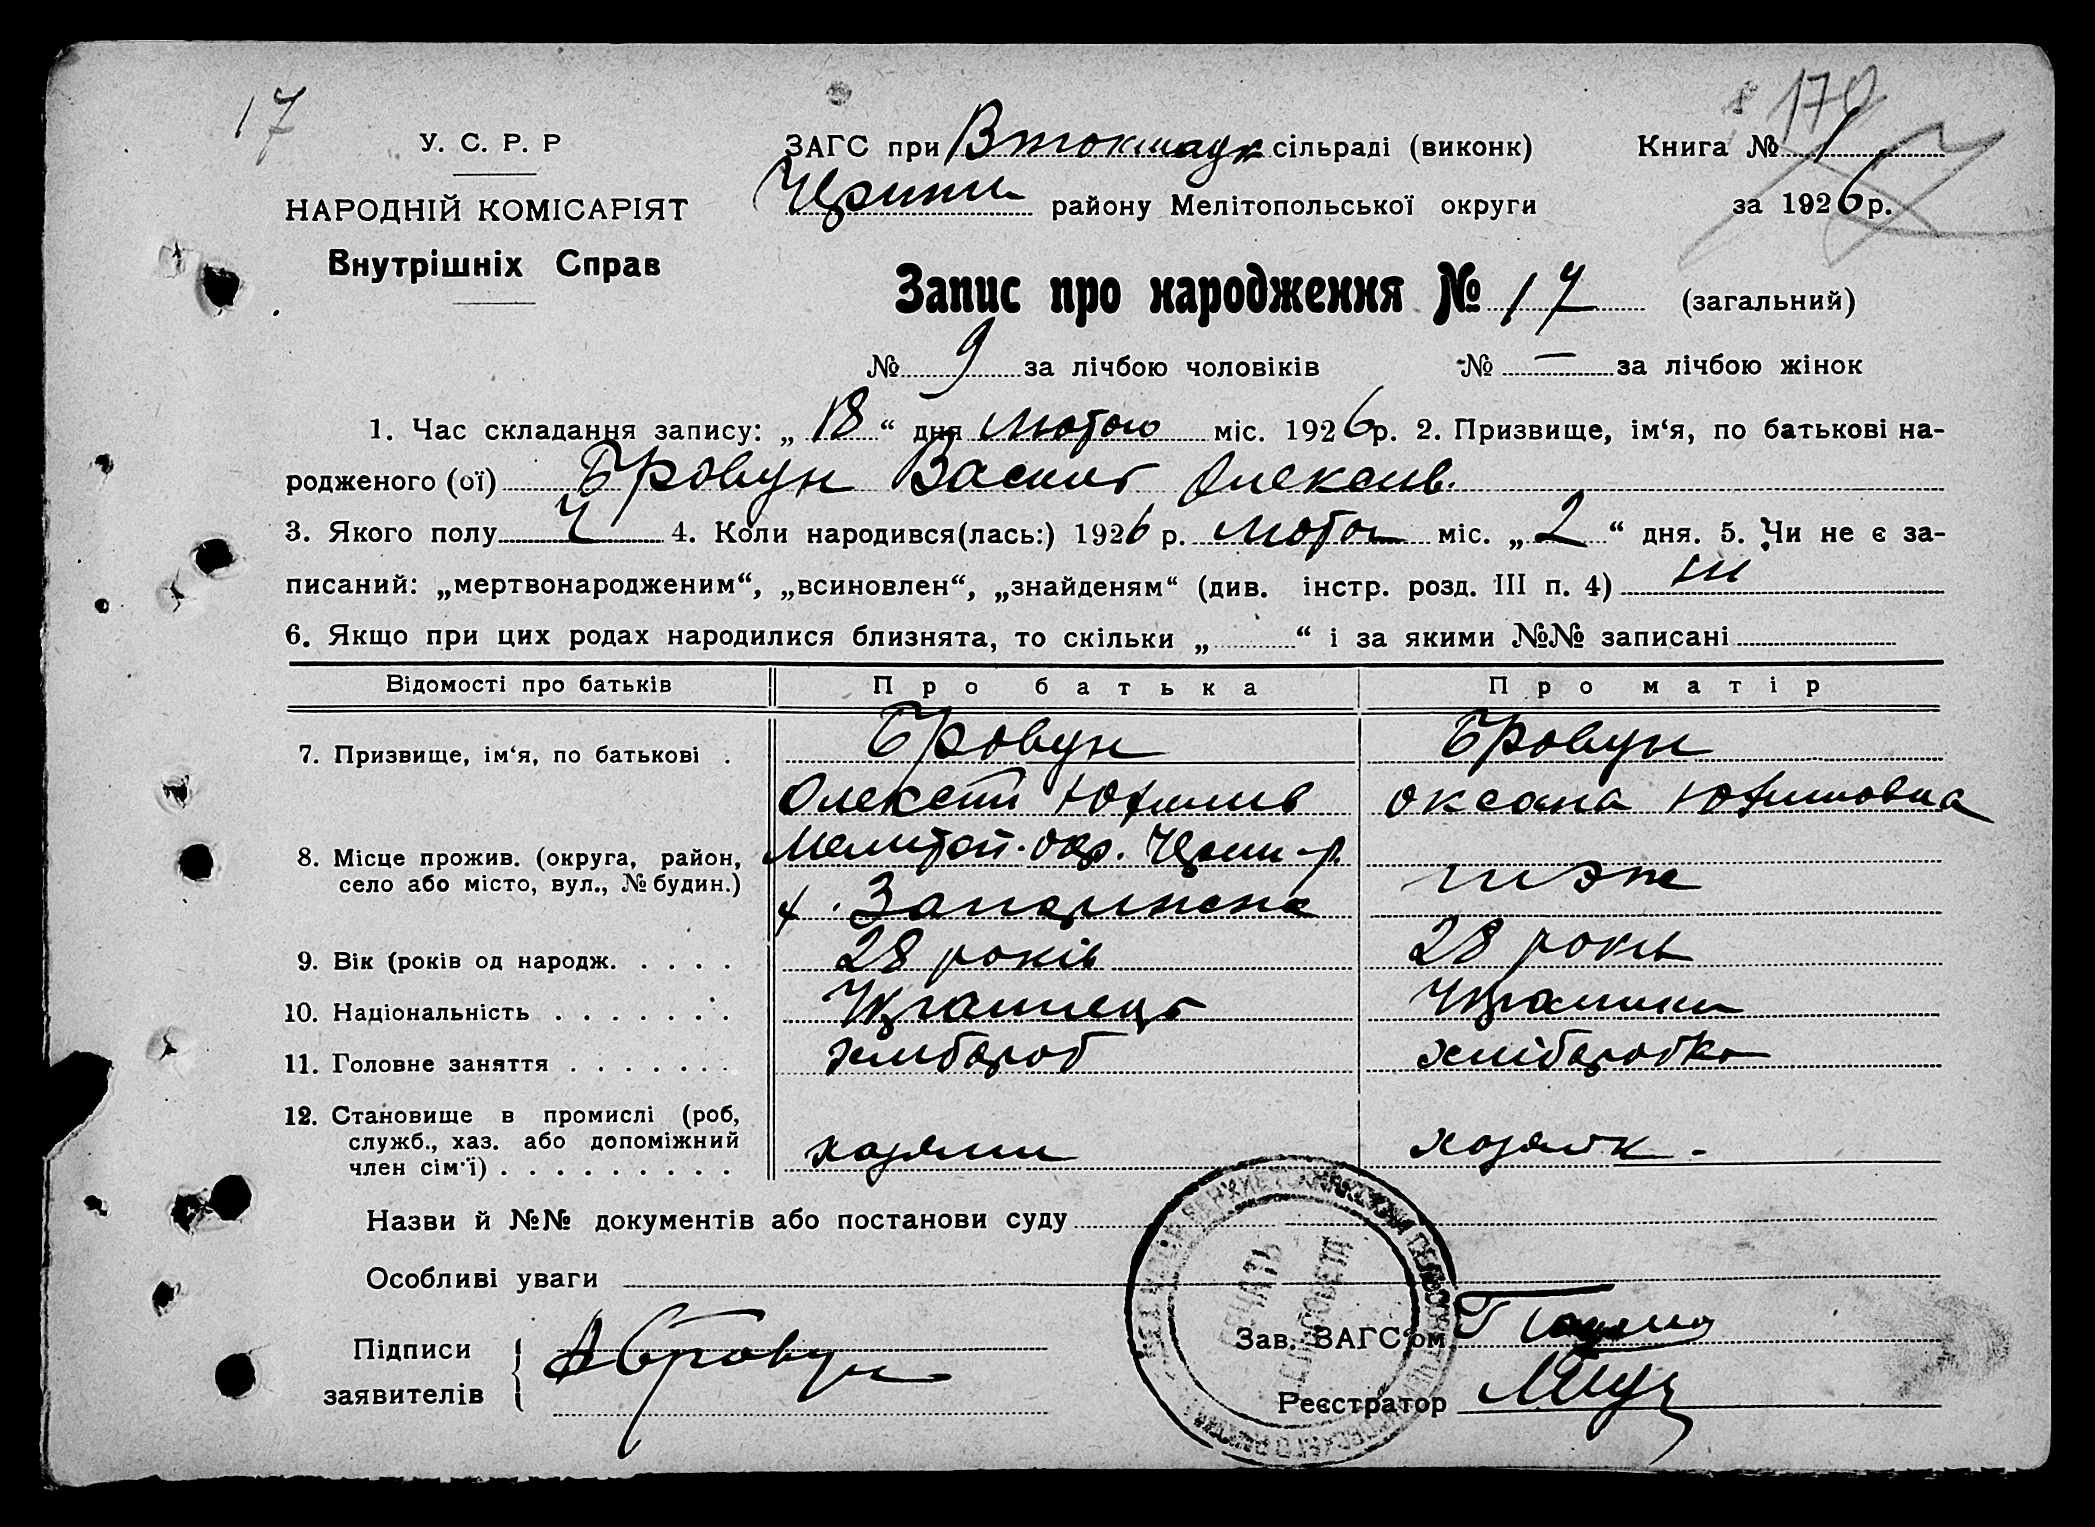 17
179
У. С. Р. Р
НАРОДНІЙ КОМІСАРІЯТ
Внутрішніх Справ
ЗАГС при Втокмацк сільраді (виконк)
району Мелітопольської округи
Книга № 1
за 1926 р.
Запис про народження № 17 (загальний)
№ 9 за лічбою чоловіків № — за лічбою жінок
1. Час складання запису: „ 18 “ дня Лютого міс. 1926 р. 2. Призвище, ім‘я, по батькові на-
родженого (ої) Бровун Василь Олексіїв.
3. Якого полу Ч 4. Коли народився(лась:) 1926 р. Лютого міс. „ 2 “ дня. 5. Чи не є за-
писаний: „мертвонародженим“, „всиновлен“, „знайденям“ (див. інстр. розд. III п. 4) ні
6. Якщо при цих родах народилися близнята, то скільки „ “ і за якими №№ записані
Відомості про батьків Про батька Про матір
7. Призвище, ім‘я, по батькові . Бровун Бровун
Олексій Юхимів Оксана Юхимовна
8. Місце прожив. (округа, район, Мелитоп. окр. р.
село або місто, вул., № будин.) х. теж
9. Вік (років од народж. . . . . 28 років 28 років
10. Національність . . . . . . . Українець Українка
11. Головне заняття . . . . . . . хлібороб хліборобка
12. Становище в промислі (роб,
служб., хаз. або допоміжний хозяин хозяйк.
член сім‘ї) . . . . . . . . . .
Назви й №№ документів або постанови суду
Особливі уваги
ПЕЧАТЬ
СЕЛЬСОВЕТА
Підписи
заявителів
АБровун
Зав. ЗАГС‘ом
Реєстратор